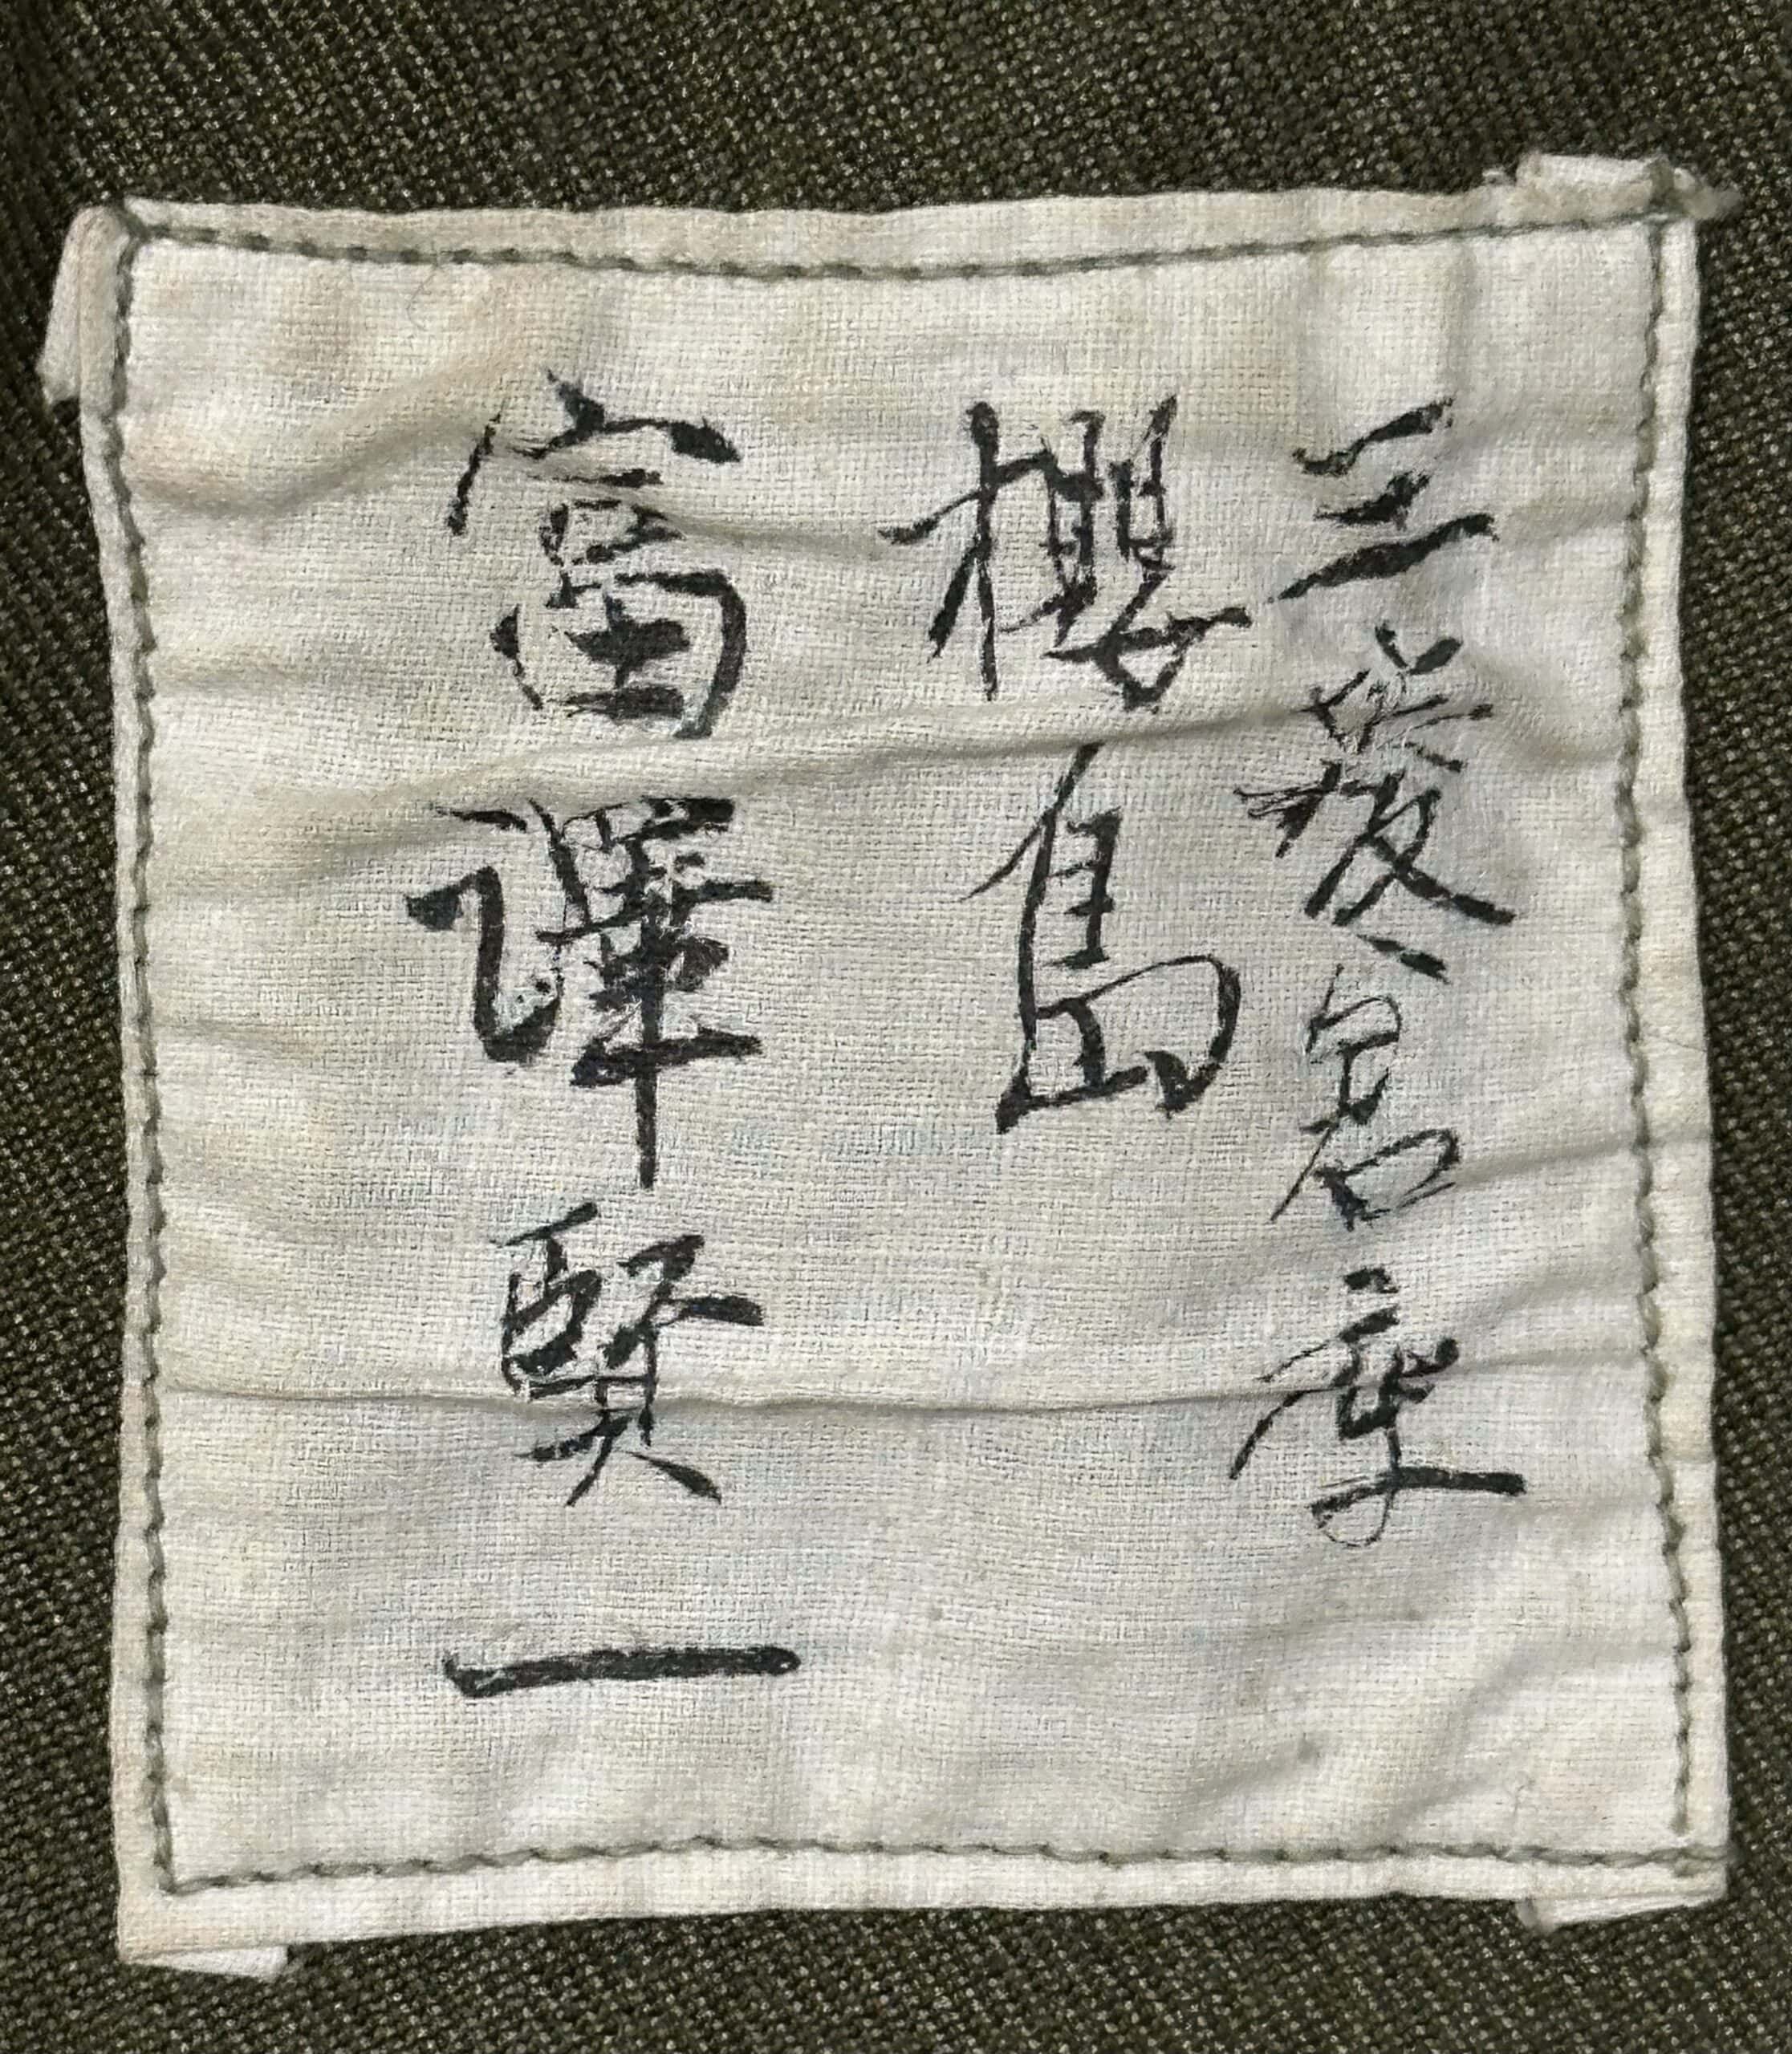 三菱
櫻島
富澤賢一